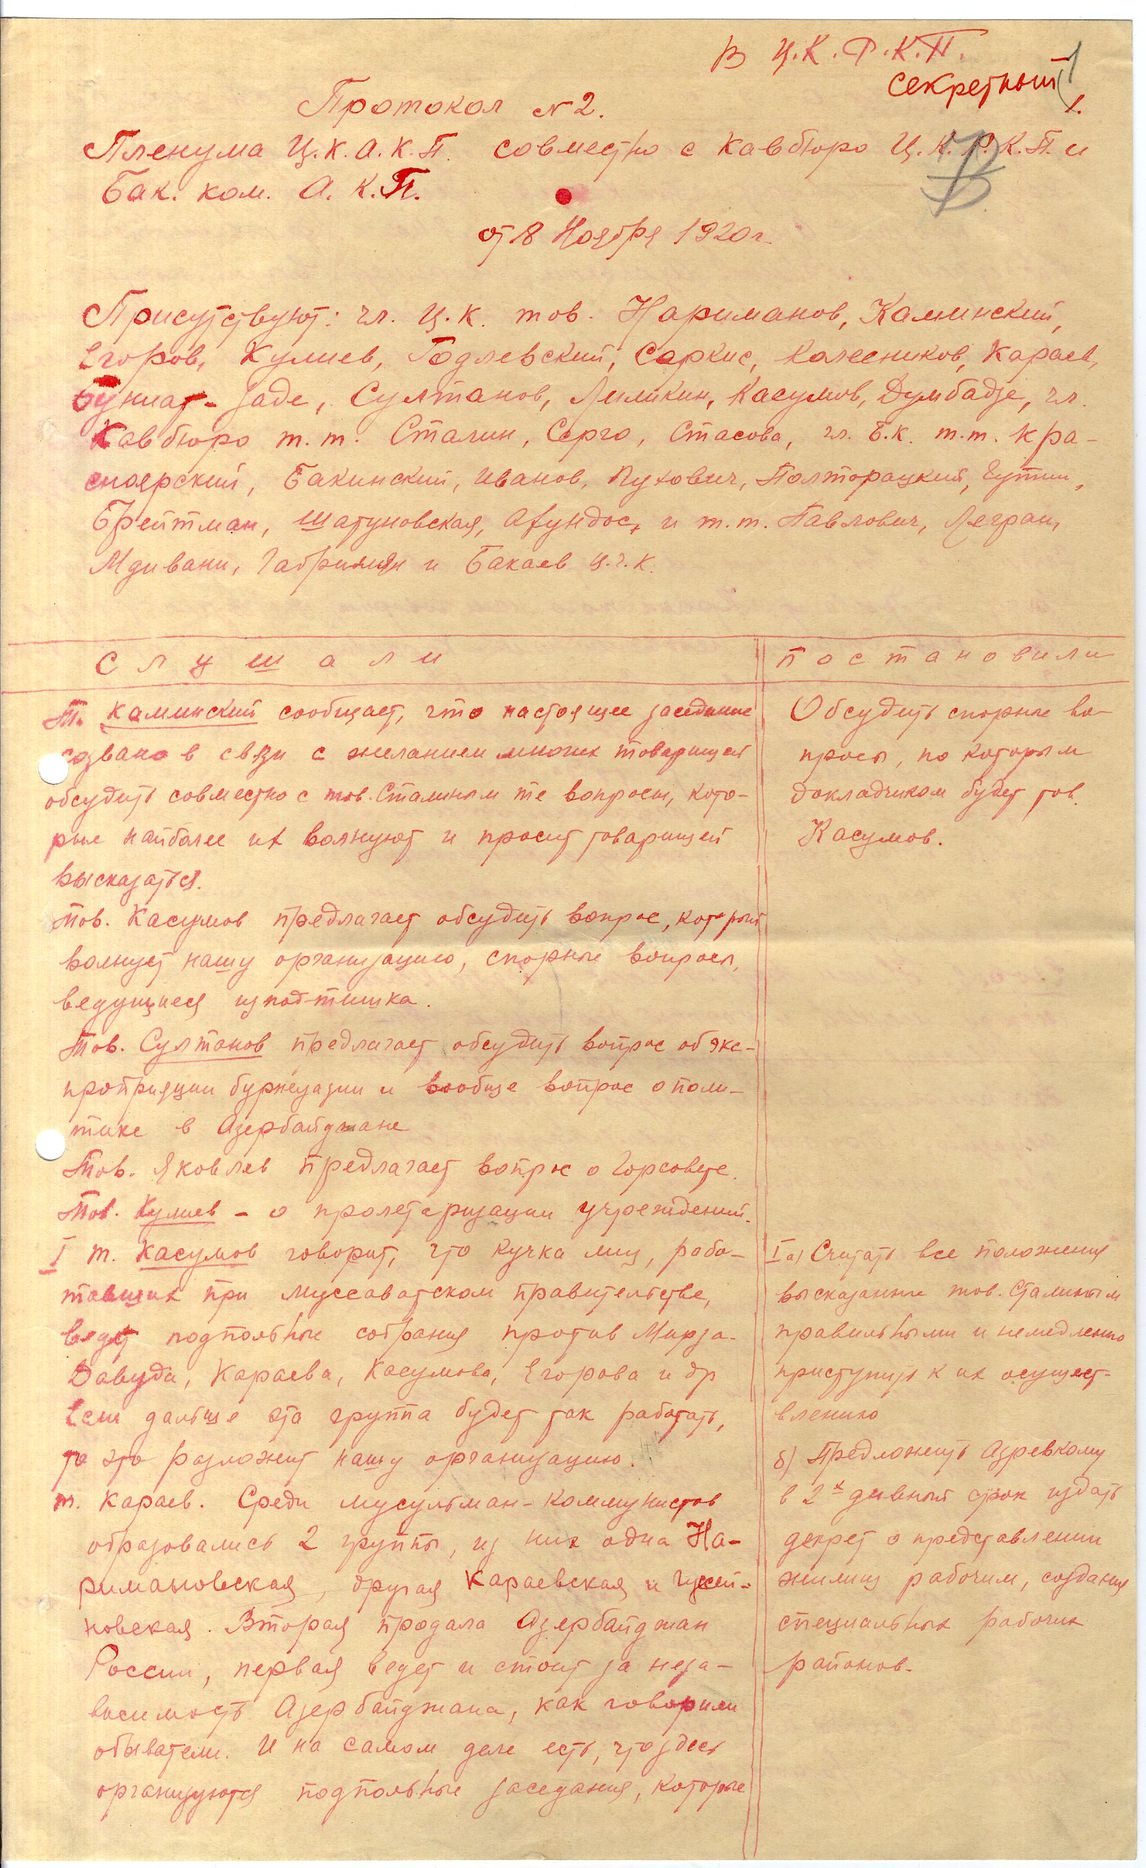 В Ц.К.Р.К.П.
Секретный
1.
Протокол №2.
Пленума Ц.К.А.К.П. совместно с Кавбюро Ц.К.Р.К.П. и
Бак. ком. А.К.П.
от 8 Ноября 1920 г.
Присутствуют: чл. Ц.К. тов. Нариманов, Каминский,
Егоров, Кулиев, Годлевский, Саркис, Колесников, Караев,
Буниат-Заде, Султанов, Касумов, Думбадзе, чл.
Кавбюро т.т. Сталин, Серго, Стасова, чл. Б.К. т.т. Кра-
сноярский, Бакинский, Иванов, Пухович, Полторацкий, Гутин,
Брейтман, Шатуновская, Ахундов, и т.т. Павлович, Легран,
Мдивани, Габриэлян и Бакаев Ц.Ч.К.
слушали
постановили
Т. Каминский сообщает, что настоящее заседание
созвано в связи с желанием многих товарищей
обсудить совместно с тов. Сталиным те вопросы, кото-
рые наиболее их волнуют и просит товарищей
высказаться.
Тов. Касумов предлагает обсудить вопрос, который
волнует нашу организацию, спорные вопросы,
ведущиеся изподтишка.
Тов. Султанов предлагает обсудить вопрос об экс-
проприяции буржуазии и вообще вопрос о поли-
тике в Азербайджане
Тов. Яковлев предлагает вопрос о Горсовете.
Тов. Кулиев - о пролетаризации учреждений.
I т. Касумов говорит, что кучка лиц, рабо-
тавших при Муссаватском правительстве,
ведет подпольные собрания против Мирза-
Давуда, Караева, Касумова, Егорова и др
Если дальше эта группа будет так работать,
то это разложит нашу организацию.
т. Караев. Среди мусульман-коммунистов
образовались 2 группы, из них одна На-
римановская, другая Караевская и Гусей-
новская. Вторая продала Азербайджан
России, первая ведет и стоит за неза-
висимость Азербайджана, как говорили
обыватели. И на самом деле есть, что здесь
организуются подпольные заседания, которые
Обсудить спорные во-
просы, по которым
докладчиком будет тов.
Касумов.
I а) Считать все положения
высказанные тов. Сталиным
правильными и немедленно
приступить к их осущест-
влению
б) Предложить Азревкому
в 2х дневный срок издать
декрет о представлении
жилищ рабочим, создания
специальных рабочих
районов.